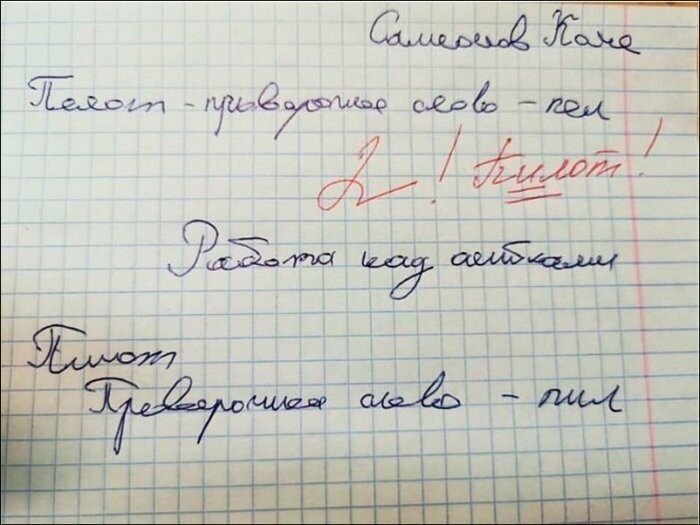 Самсонов Коле
Пелот -приверочное слово - пел
2! Пилот!
Работа над ашибками
Пилот
Преверочное слово - пил